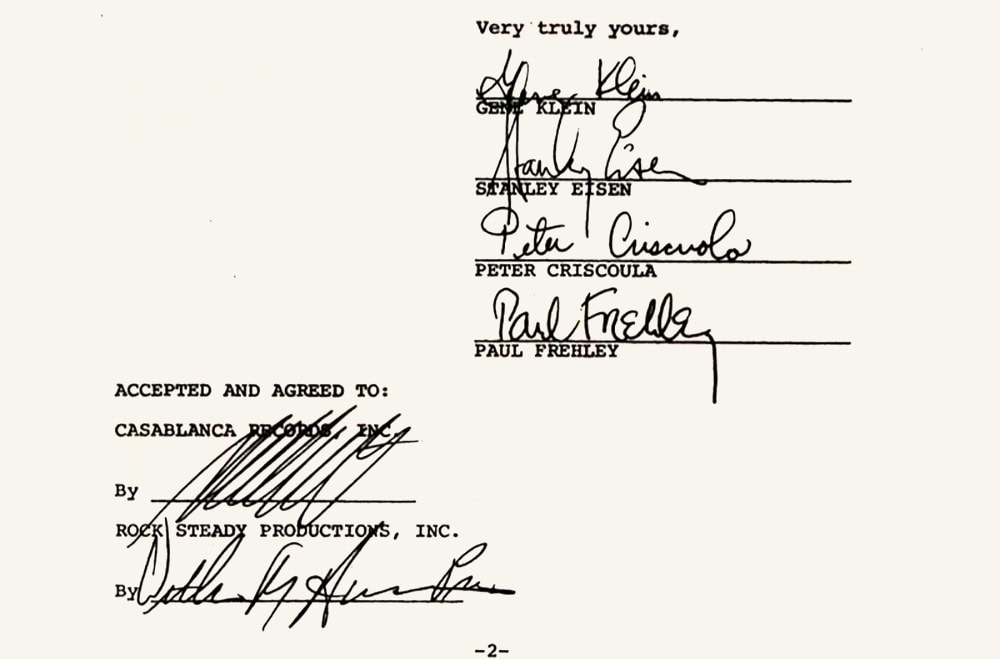 Very truly yours,
Gene Klein
GENE KLEIN
Stanley Eisen
STANLEY EISEN
Peter Criscuola
PETER CRISCOULA
Paul Frehley
PAUL FREHLEY
ACCEPTED AND AGREED TO:
CASABLANCA RECORDS, INC.
By
ROCK STEADY PRODUCTIONS, INC.
By
-2-